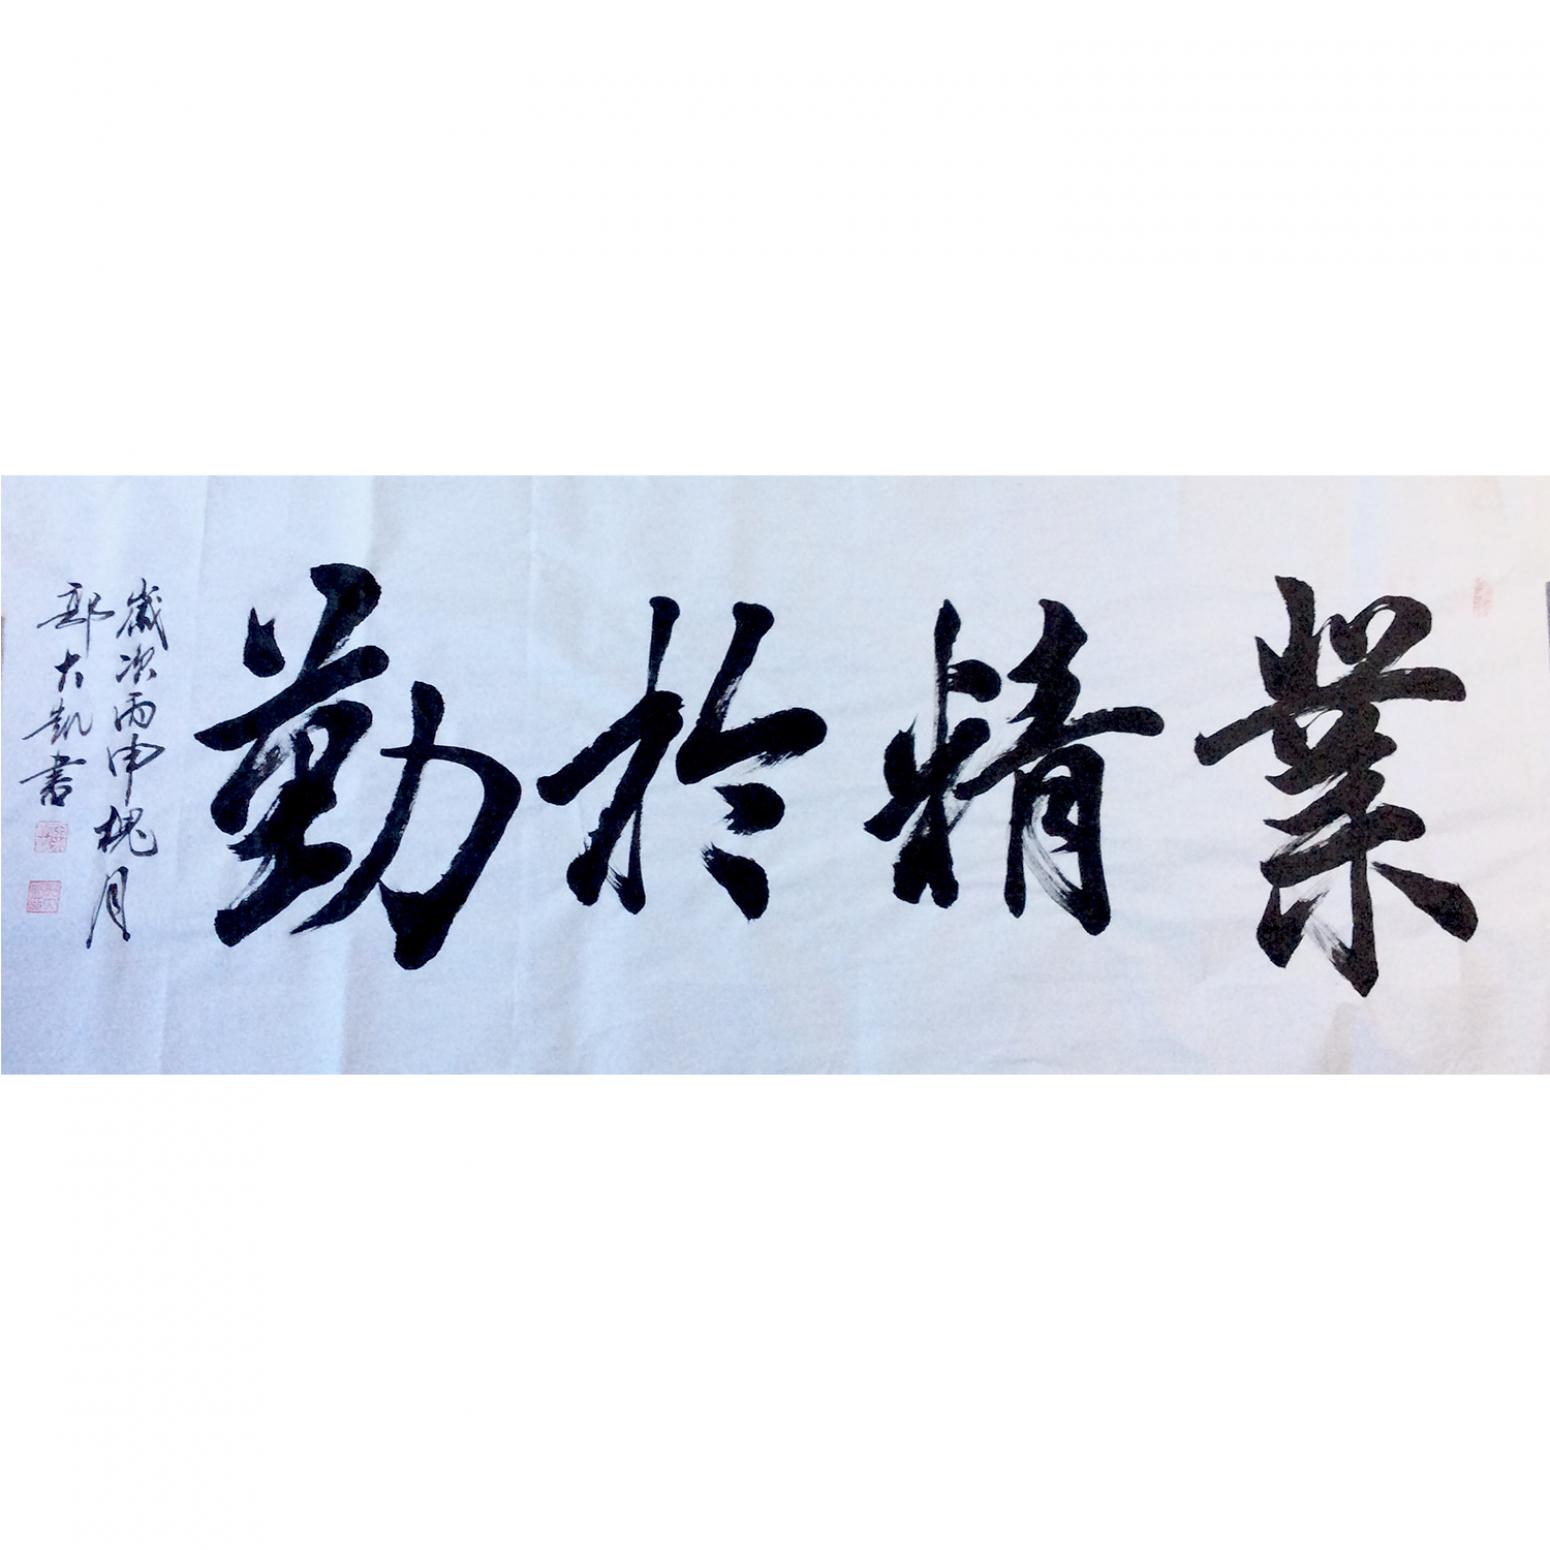 業精於勤
歲次丙申槐月
郭大凱書